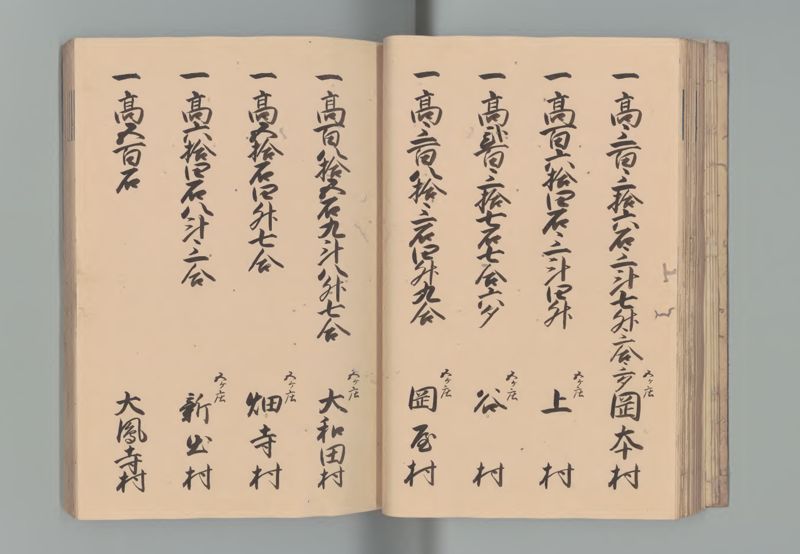 一 高三百三拾六石三斗七升三合三夕 五ケ庄 岡本村
一 高百六拾四石三斗四升 五ケ庄 上村
一 高弐百三拾七石七合六夕 五ケ庄 谷村
一 高三百八拾三石四升九合 五ケ庄 岡屋村
一 高百八拾五石九斗八升七合 五ケ庄 大和田村
一 高五拾石四升七合 五ケ庄 畑寺村
一 高六拾四石八斗三合 五ケ庄 新出村
一 高五百石 大鳳寺村